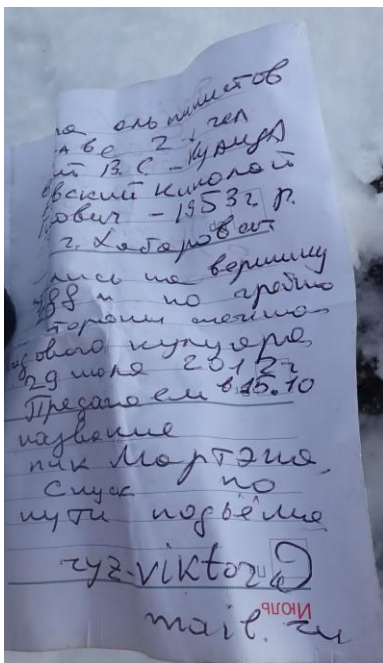 па альпинистов
аве 2 х чел
ий В. С. - Кузид
вский Николай
ович - 1953 г. р.
г. Хабаровск
лись на вершину
788 м по гребню
стороны
дового кулуара,
29 июля 2012 г
в 15.10
Предлагаем
название
пик Мортэна,
Спуск по
пути подъёма
ryz-viktor@
mail.ru
Июль